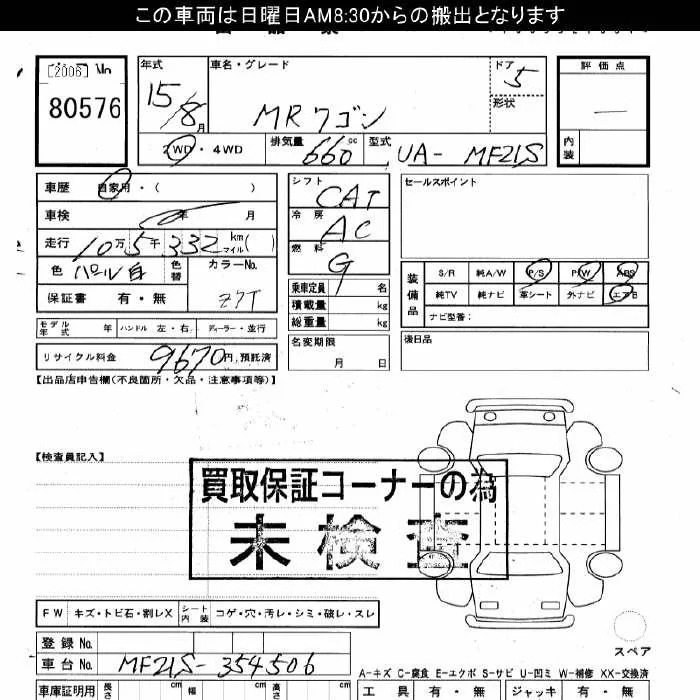 この車両は日曜日AM8:30からの搬出となります
[2006] No
80576
年式 15/8月
車名・グレード MRワゴン
ドア 5
形状
評価点 —
内装
2WD・4WD
排気量 660cc
型式 UA-MF21S
車歴 自家用・( )
車検 年 月
走行 10万5千332km マイル( )
色 パール白 色替
カラーNo. Z7T
保証書 有・無
モデル年式 年 ハンドル 左・右 ディーラー・並行
リサイクル料金 9670円, 預託済
シフト CAT
冷房 AC
燃料 G
乗車定員 名
積載量 kg
総重量 kg
名変期限 月 日
セールスポイント
装備品
S/R 純A/W P/S P/W ABS
純TV 純ナビ 革シート 外ナビ エアB
ナビ型番:
後日品
【出品店申告欄(不良箇所・欠品・注意事項等)】
【検査員記入】
買取保証コーナーの為
未検査
FW キズ・トビ石・割レX シート内装 コゲ・穴・汚レ・シミ・破レ・スレ
登録No.
車台No. MF21S-354506
スペア
A-キズ C-腐食 E-エクボ S-サビ U-凹ミ W-補修 XX-交換済
車庫証明用 長さ cm 幅 cm 高さ cm
工具 有・無 ジャッキ 有・無